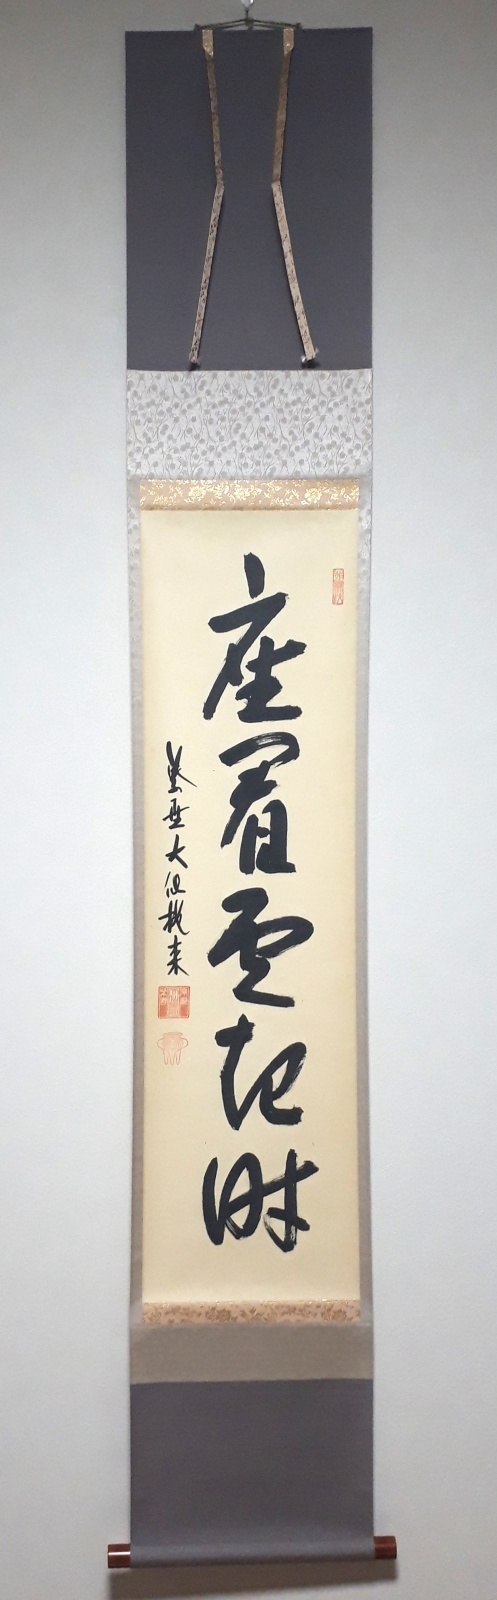 座看雲起時
紫野大仙桃来